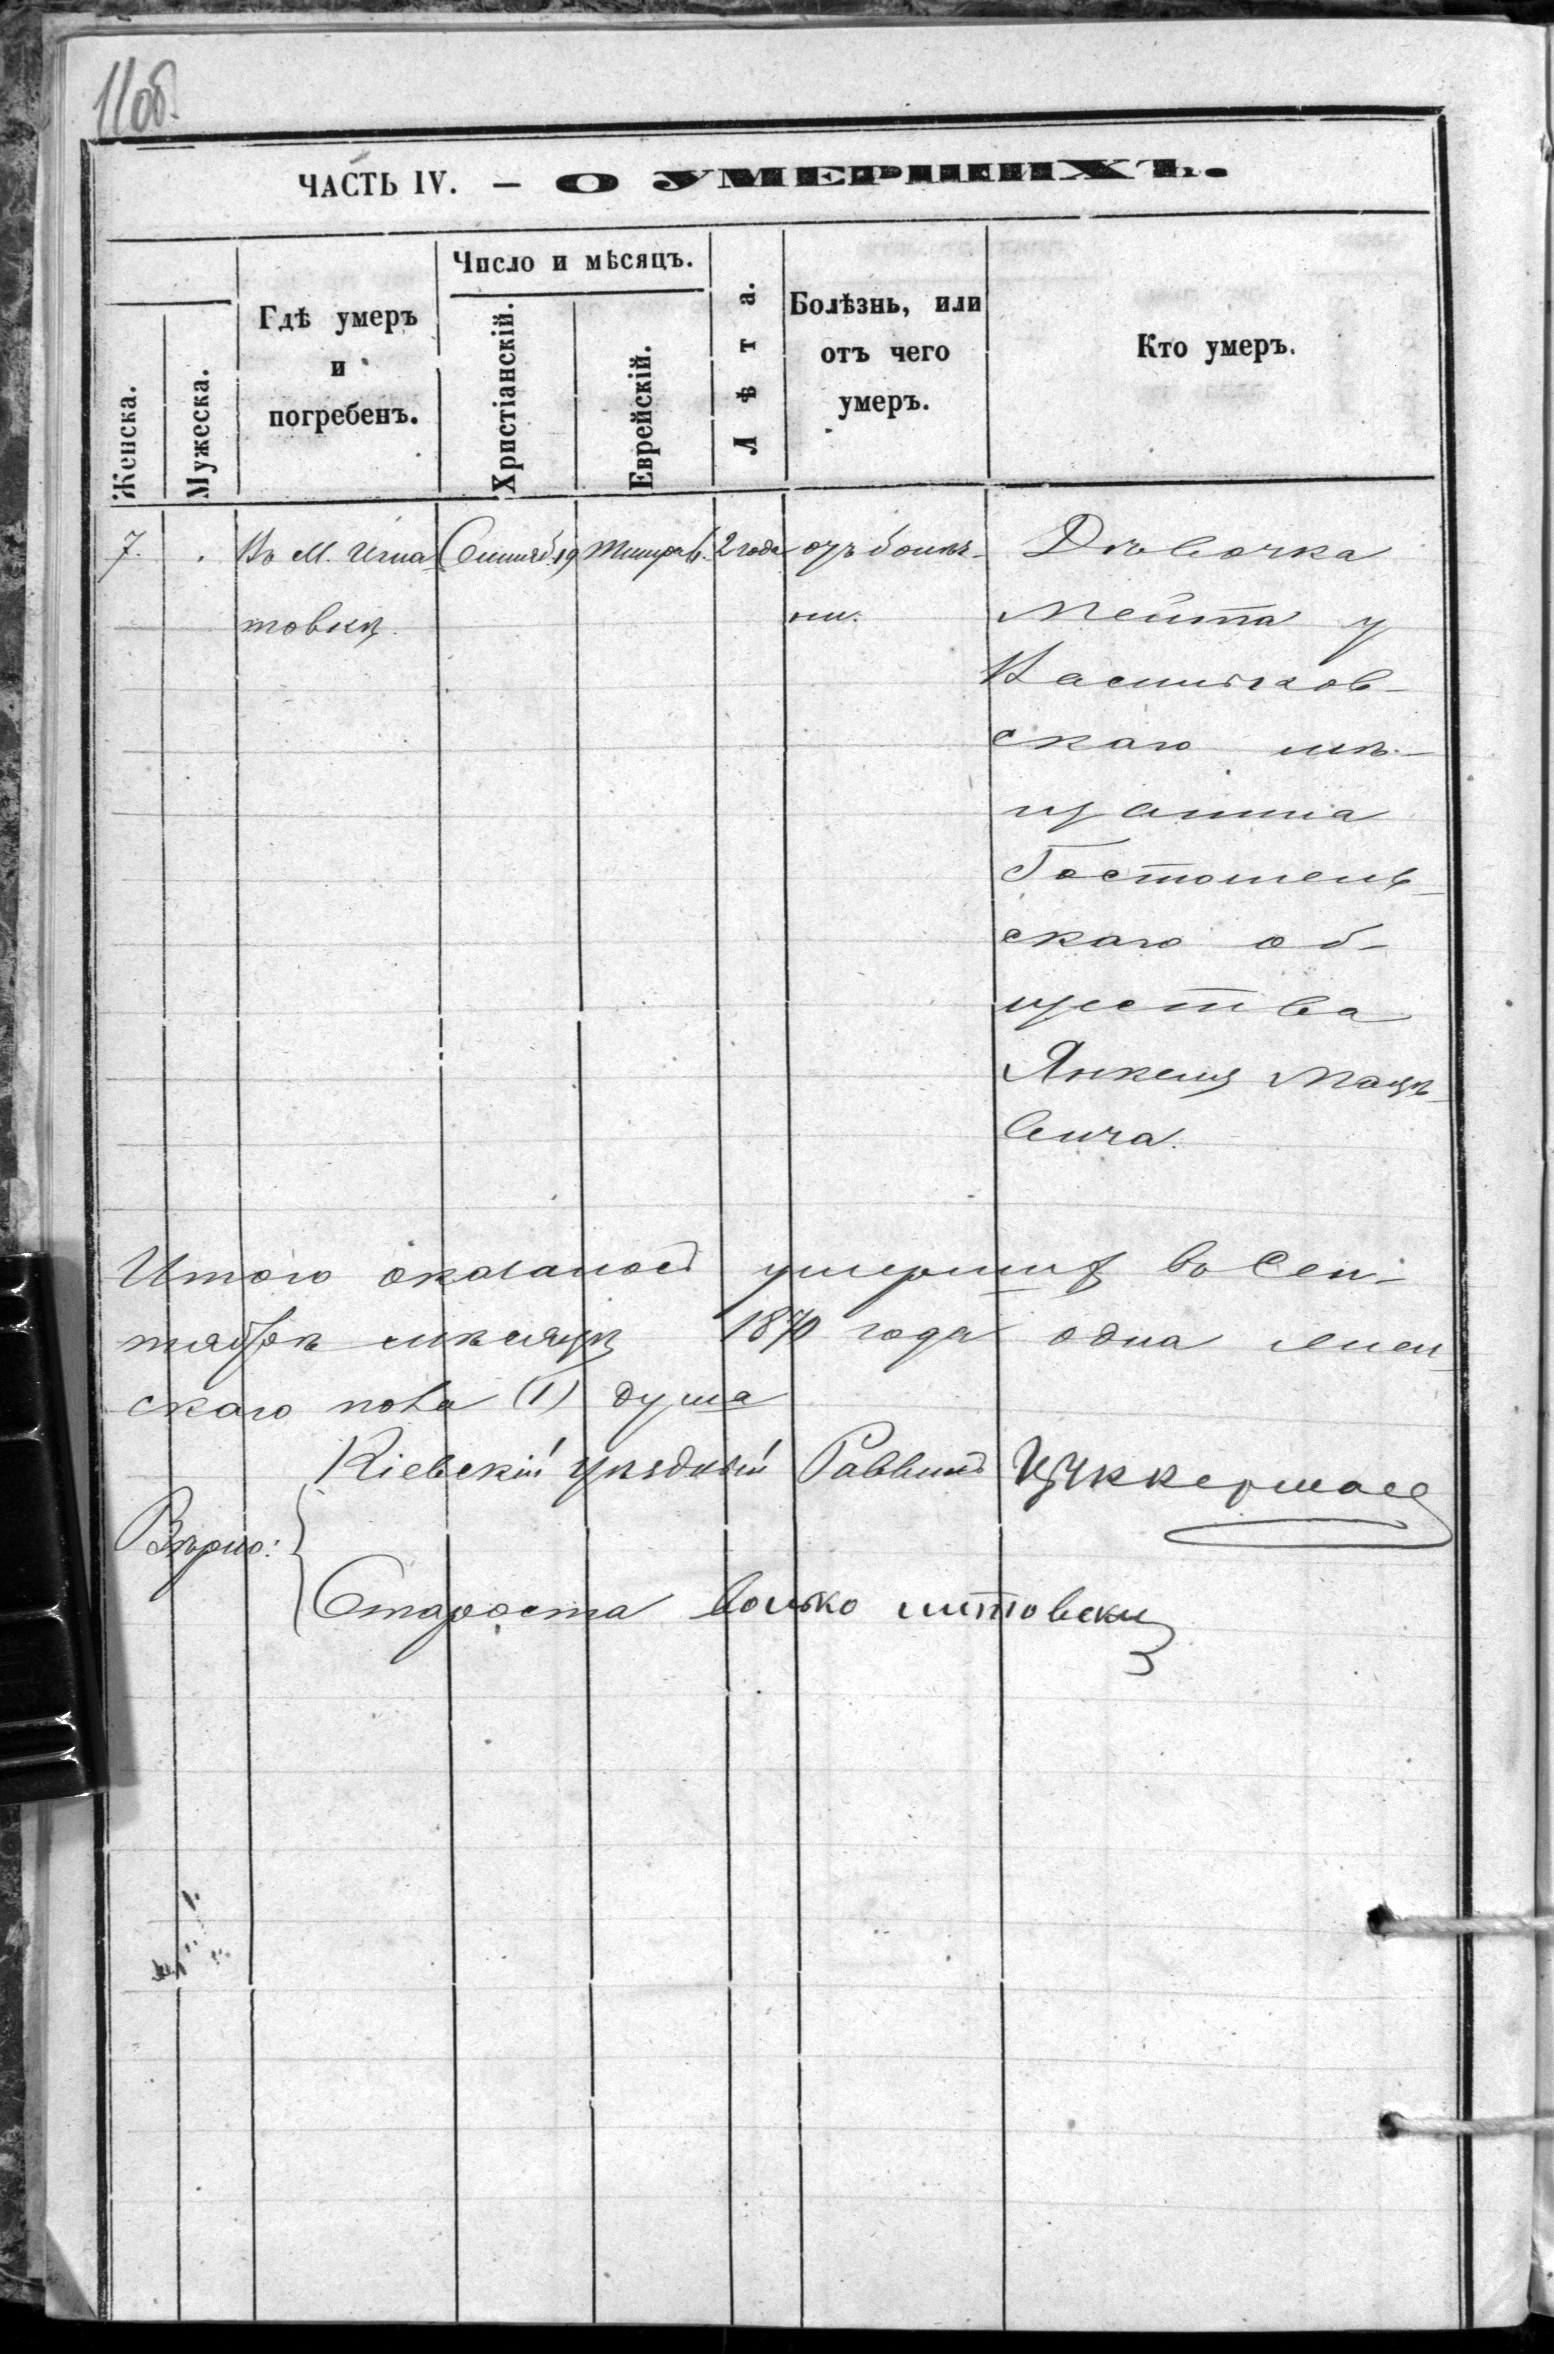 11об.
ЧАСТЬ IV. — О УМЕРШИХЪ.
Женска.
Мужеска.
Гдѣ умеръ
и
погребенъ.
Число и мѣсяцъ.
Христіанскій.
Еврейскій.
Лѣта.
Болѣзнь, или
отъ чего
умеръ.
Кто умеръ.
7. . Въ М. Игна- Сентяб. 19 Тишра 6. 2 года отъ болѣз- Дѣвочка
товкѣ. ни. Мейта у
Васильков-
скаго мѣ-
щанина
Гостомель-
скаго об-
щества
Янкеля Мацѣ-
вича.
Итого оказалось умершихъ въ Сен-
тябрѣ мѣсяцѣ 1870 года одна жен-
скаго пола (1) душа
Кіевскій уѣздный Раввинъ Цуккерманъ
Вѣрно:
Староста Волько Литовски